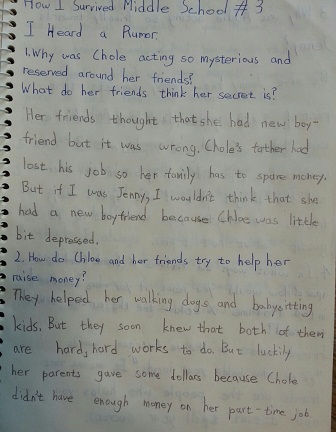 How I Survived Middle School #3
I Heard a Rumor.
1. Why was Chole acting so mysterious and
reserved around her friends?
What do her friends think her secret is?
Her friends thought that she had new boy-
friend but it was wrong. Chole's father had
lost his job so her family has to spare money.
But if I was Jenny, I wouldn't think that she
had a new boyfriend because Chloe was little
bit depressed.
2. How do Chloe and her friends try to help her
raise money?
They helped her walking dogs and babysitting
kids. But they soon knew that both of them
are hard, hard works to do. But luckily
her parents gave some dollars because Chole
didn't have enough money on her part-time job.